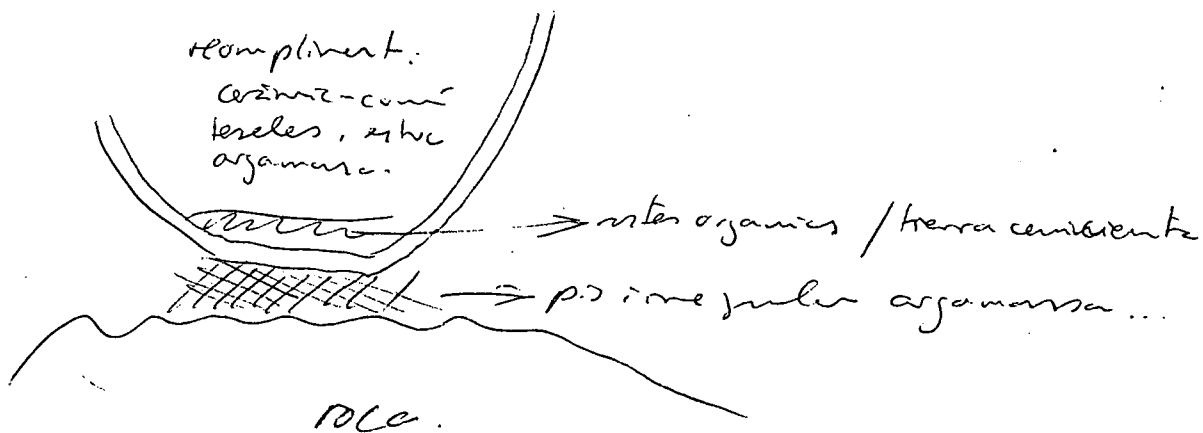 recompliment:
ceràmic-comú
teseles, estuc
argamassa.
restes organics / tierra cenicienta
pis irregular argamassa...
roca.